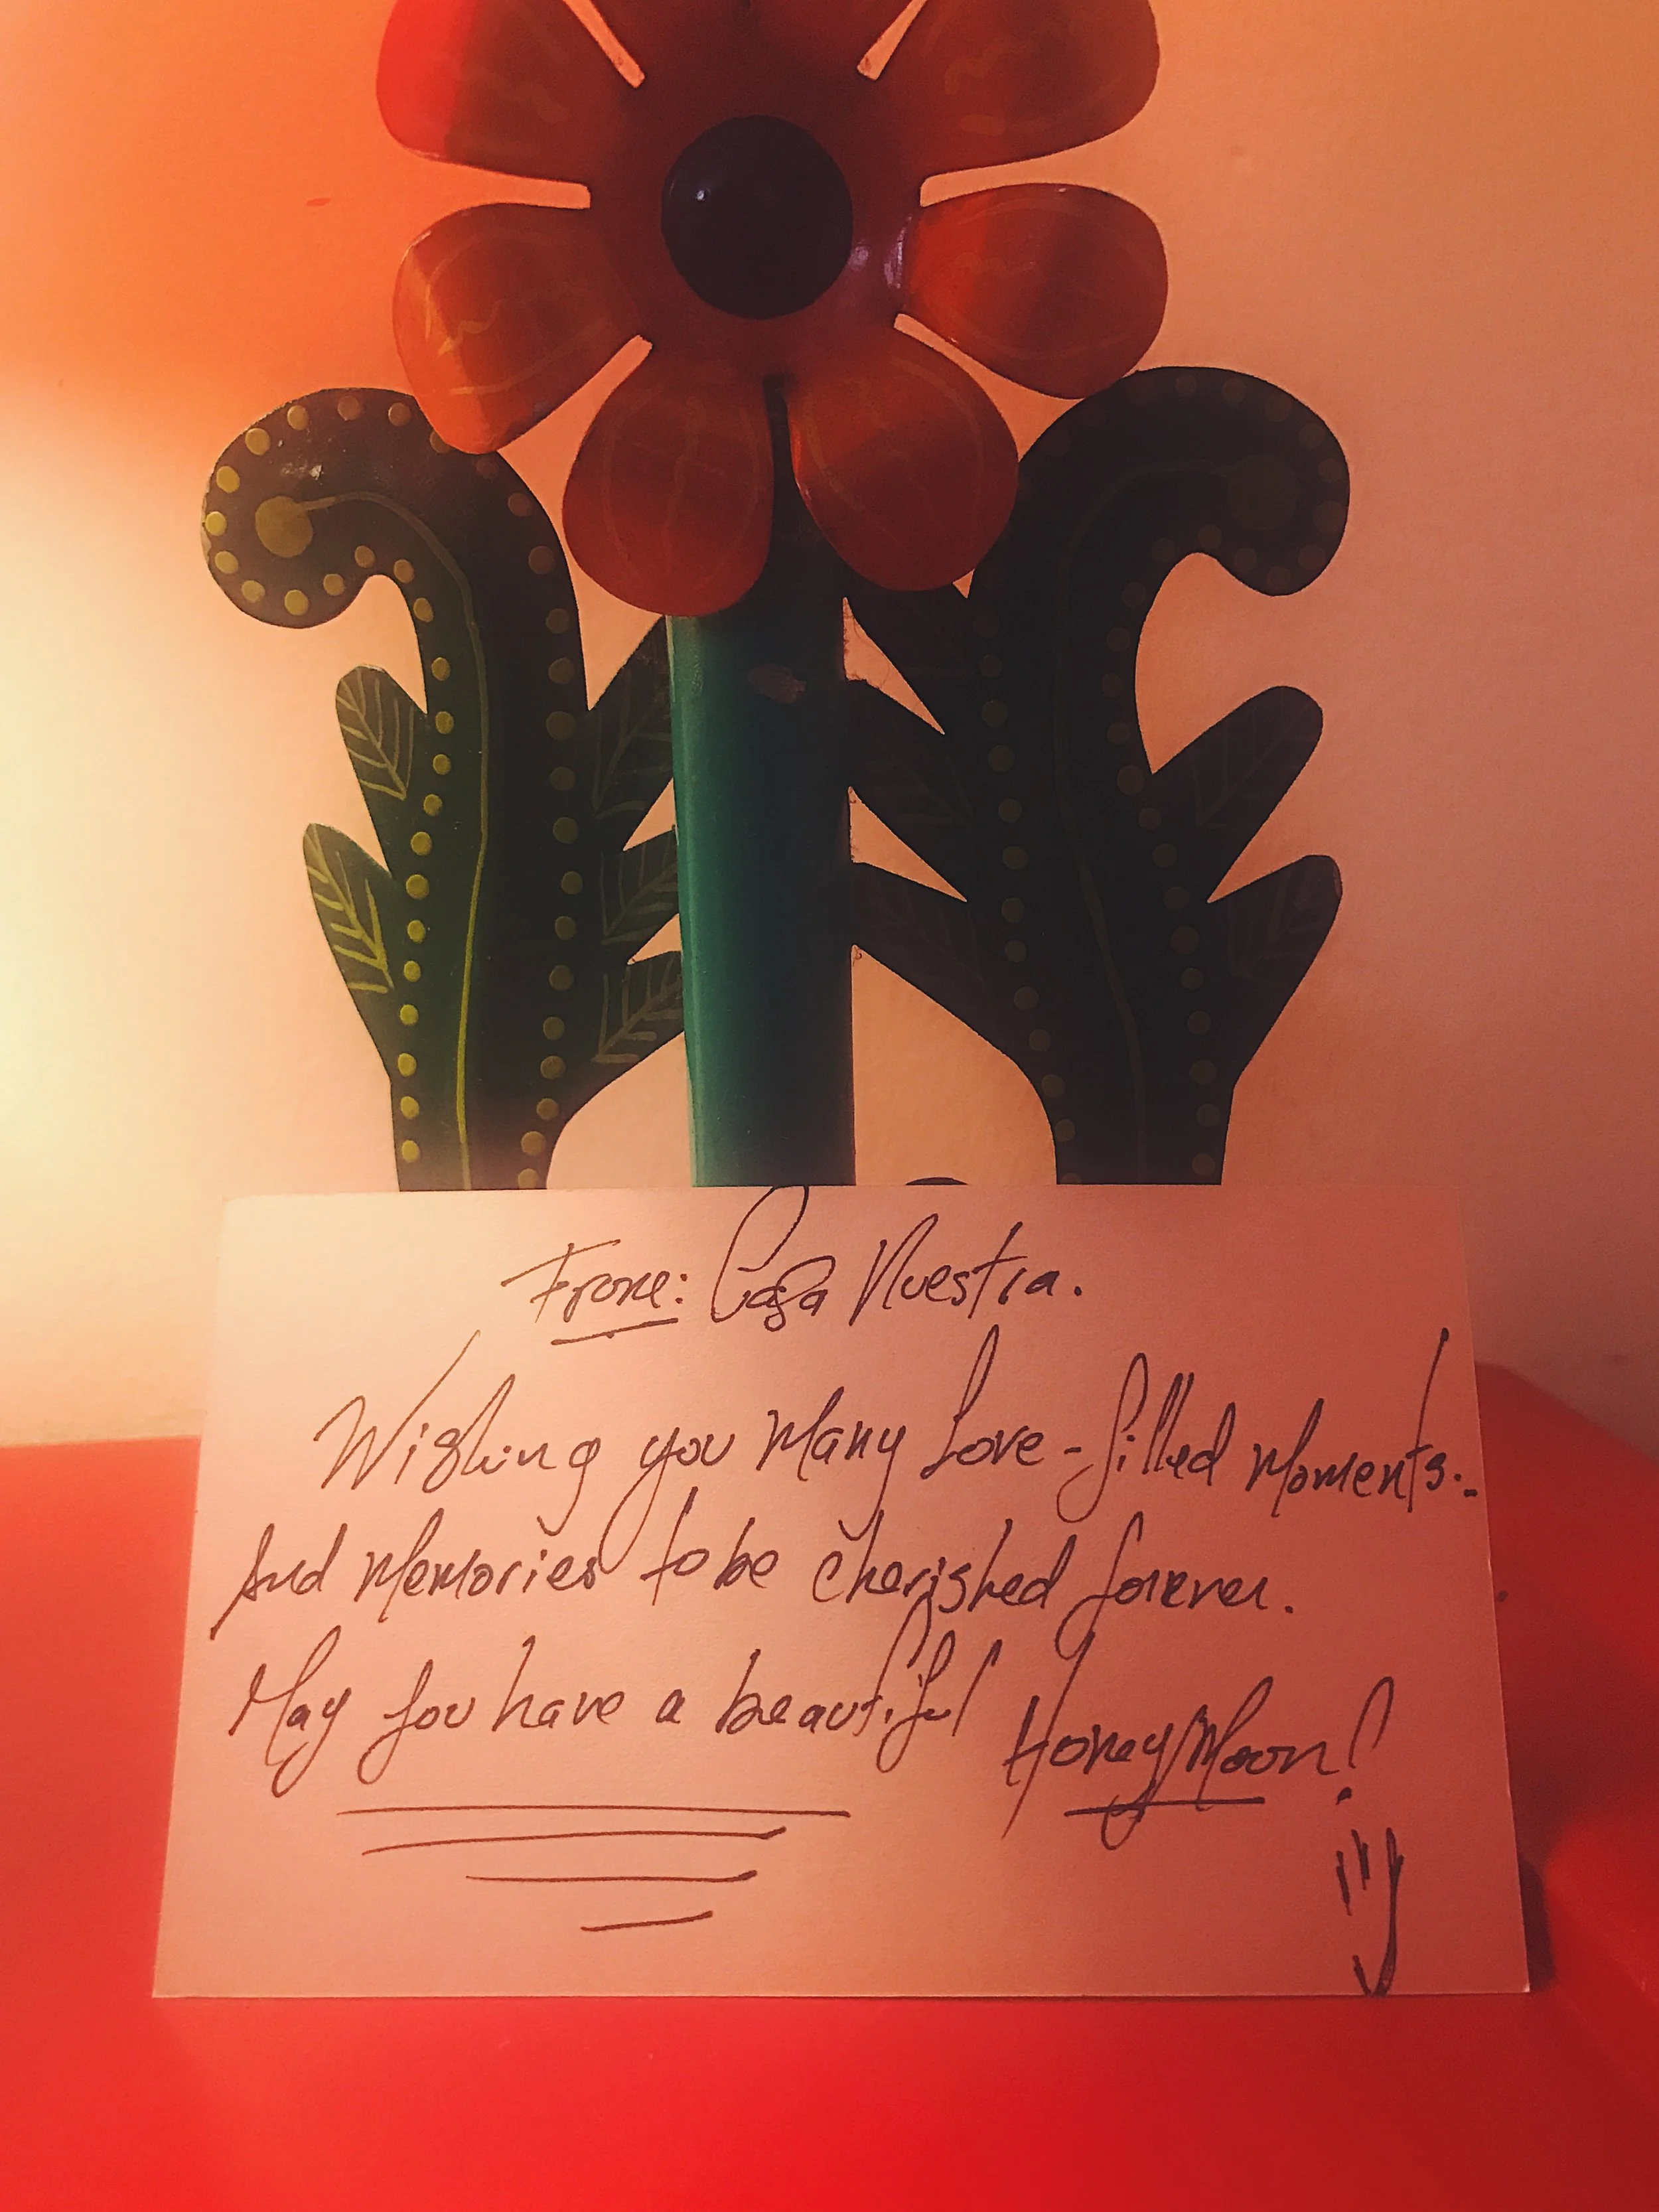 From: Casa Nuestra.
Wishing you Many Love-filled Moments.
And Memories to be cherished forever.
May you have a beautiful HoneyMoon!